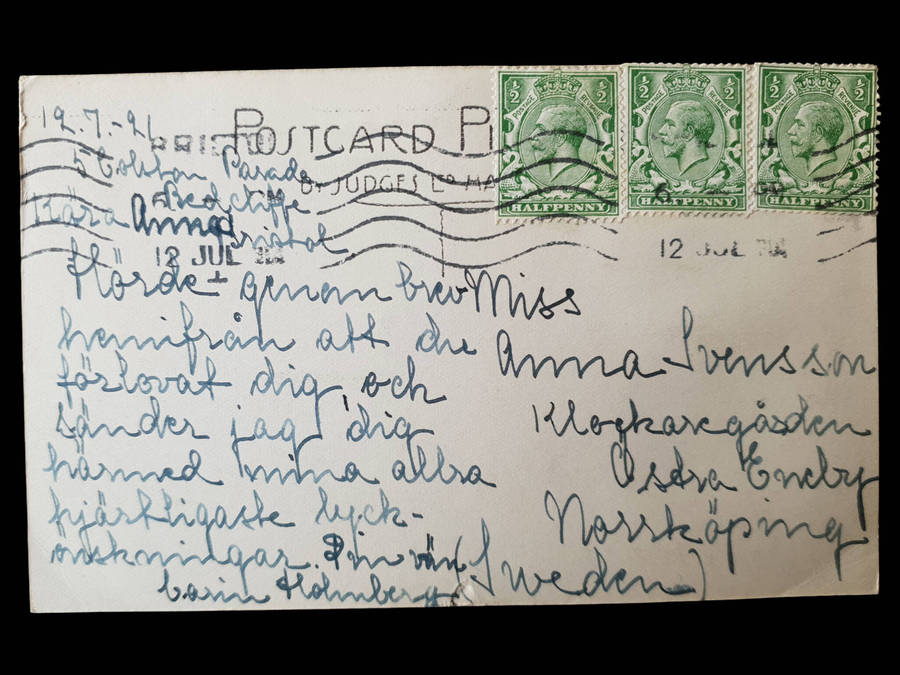 19.7.-21.
BRISTOL
POSTCARD
BY JUDGES LD
5 Colston Parade
Redcliffe
Bristol
Kära Anna
12 JUL
12 JUL
½ ½
POSTAGE REVENUE
HALFPENNY
½ ½
POSTAGE REVENUE
HALFPENNY
½ ½
POSTAGE REVENUE
HALFPENNY
Hörde genom brev
hemifrån att du
förlovat dig, och
sänder jag dig
härmed mina allra
hjärtligaste lyck-
önskningar. Din vän
Carin Holmberg
Miss
Anna Svensson
Klockaregården
Östra Eneby
Norrköping
(Sweden)